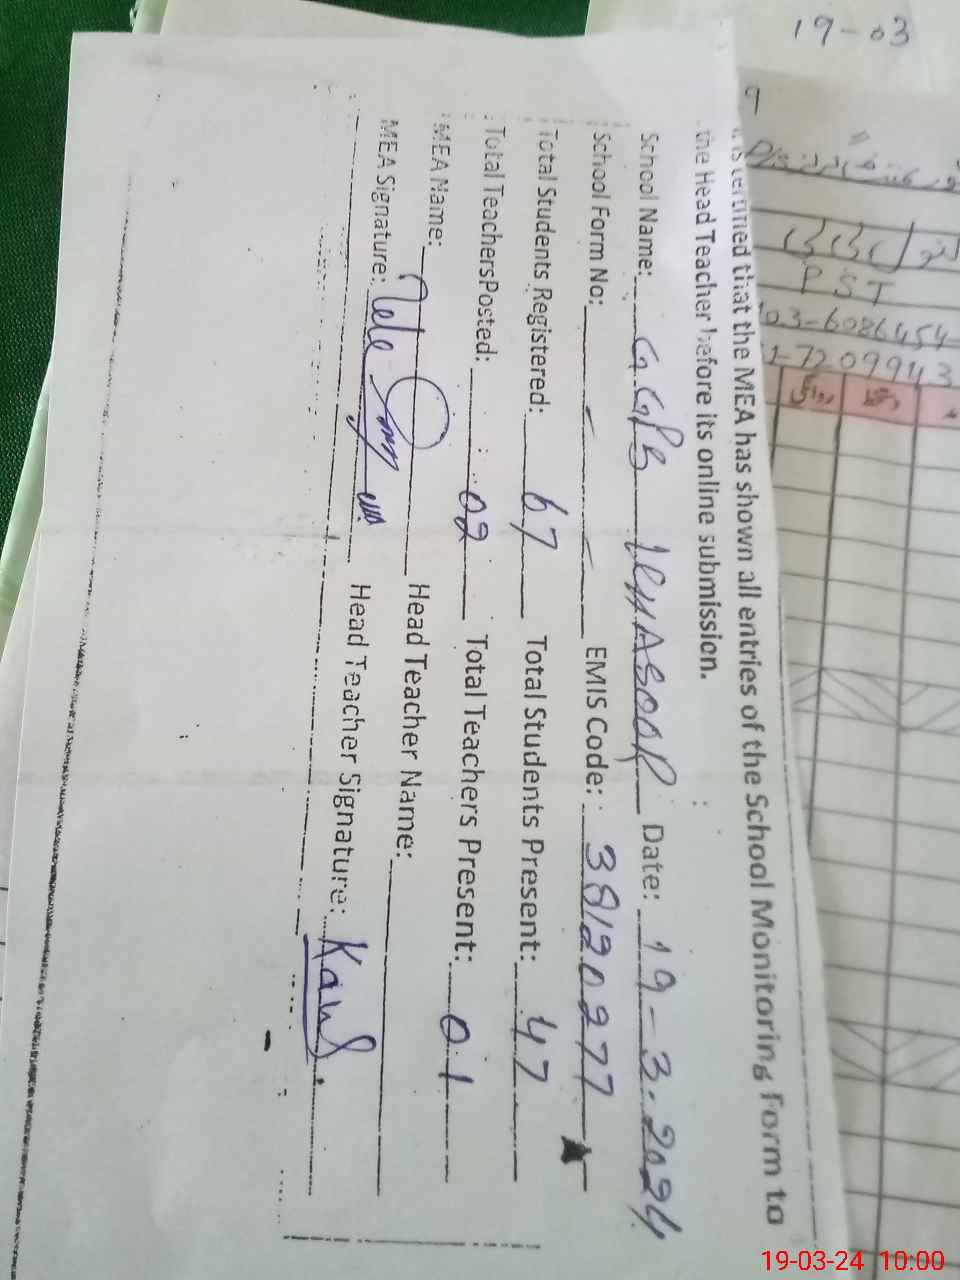 19-03
PST
03-6086454
It is certified that the MEA has shown all entries of the School Monitoring Form to
the Head Teacher before its online submission.
School Name: GGPS Date: 19-3-2024
School Form No: EMIS Code: 38120277
Total Students Registered: 67 Total Students Present: 47
Total TeachersPosted: 02 Total Teachers Present: 01
MEA Name: Head Teacher Name:
MEA Signature: Head Teacher Signature:
19-03-24 10:00